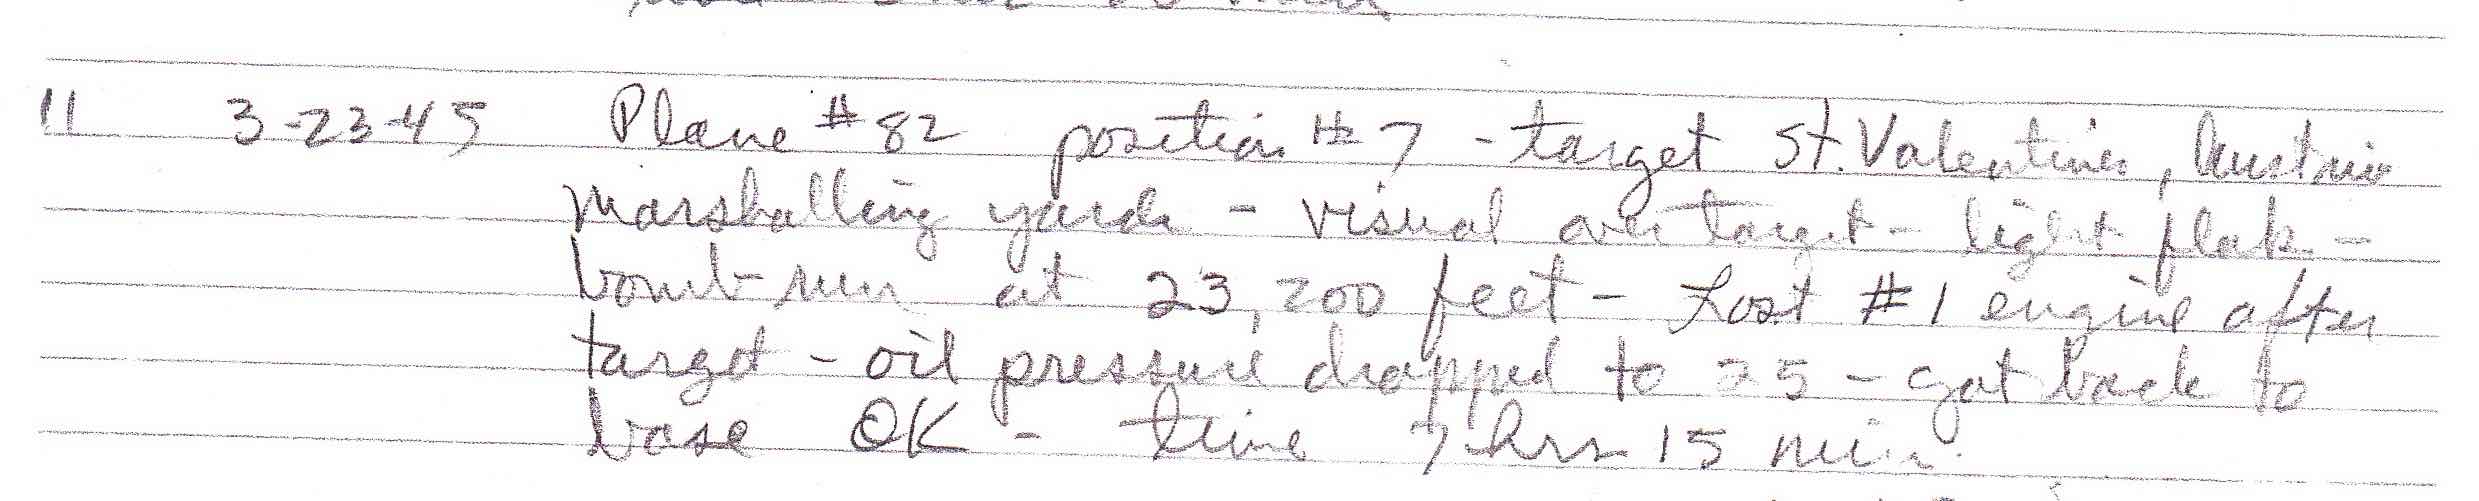 11 3-23-45 Plane #82 position #7 - target St. Valentines, Austria
Marshalling yards - visual over target - light flak -
bomb run at 23,200 feet - Lost #1 engine after
target - oil pressure dropped to 25 - got back to
base OK - time 7 hrs 15 min.